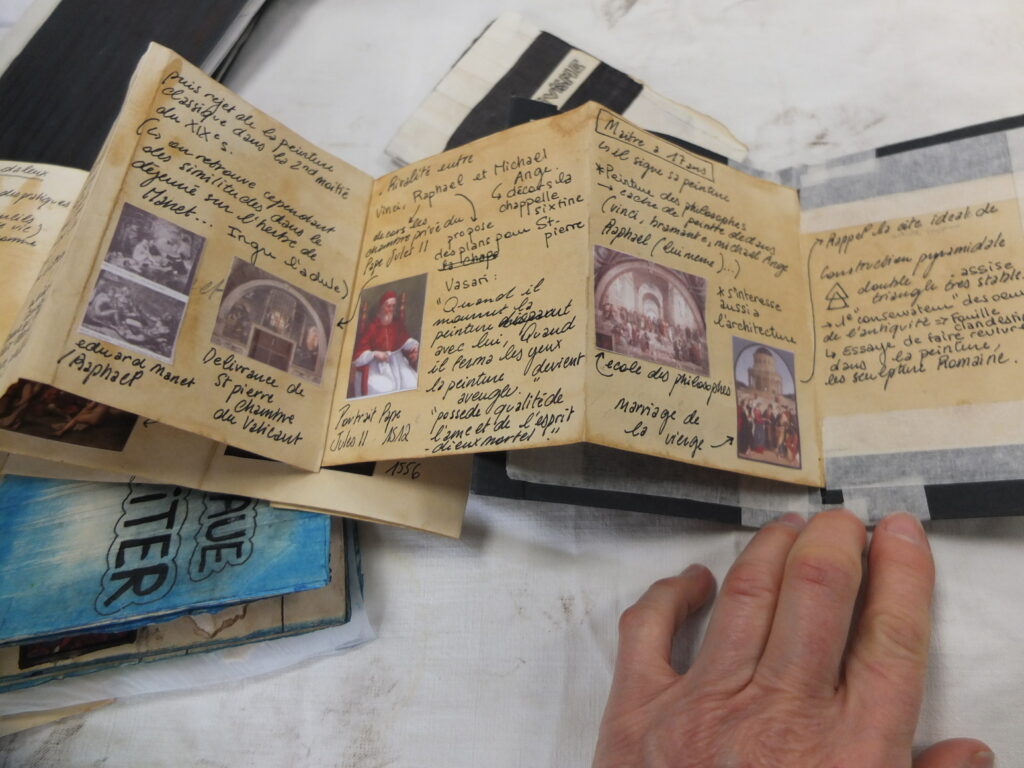 puis rejet de la peinture
classique dans la 2nd moitié
du XIXe s.
on retrouve cependant
des similitudes dans le
dejeuné sur l'herbe de
Manet... Ingre
eduard Manet
(Raphael
Delivrance de
St pierre
Chambre
du Vaticant
Rivalité entre
Vinci, Raphael et Michael
Ange.
↳ décors la
chappelle
sixtine
decors les
chambre privé du
Pape Jules II
propose
des plans pour St-
pierre
Vasari:
"Quand il
mourrut la
peinture disparut
avec lui, "Quand
il ferma les yeux
la peinture "devient
aveugle"
"possede qualité de
l'ame et de l'esprit
-dieux mortel."
Portrait Pape
Jules II. 1512
1556
Maitre à 17 ans
↳ il signe sa peinture
*Peinture des philosophes
→ cache de peintre dedans
(vinci, bramante, michael Ange
Raphael (lui meme)...)
*s'interesse
aussi a
l'architecture
(ecole des philosophes
Marriage de
la vierge
Rappel la cité ideal de
Construction pyramidale
double assise
triangle tres stable
→ 1er conservateur "des oeu
de l'antiquité => Fouille
clandestin
↳ Essaye de faire revivre
dans la peinture,
les sculpture Romaine.